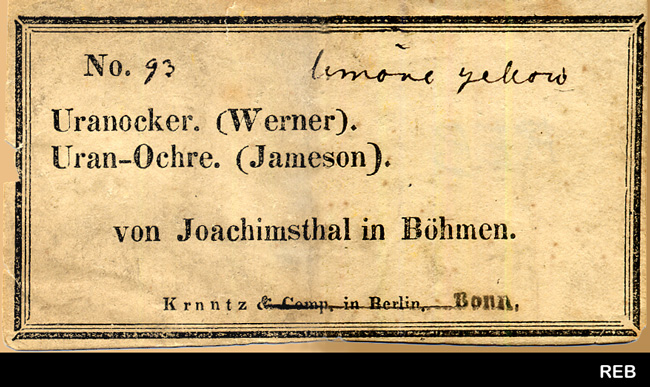 No. 93 limone yellow
Uranocker. (Werner).
Uran-Ochre. (Jameson).
von Joachimsthal in Böhmen.
Krnntz & Comp. in Berlin, Bonn,
REB